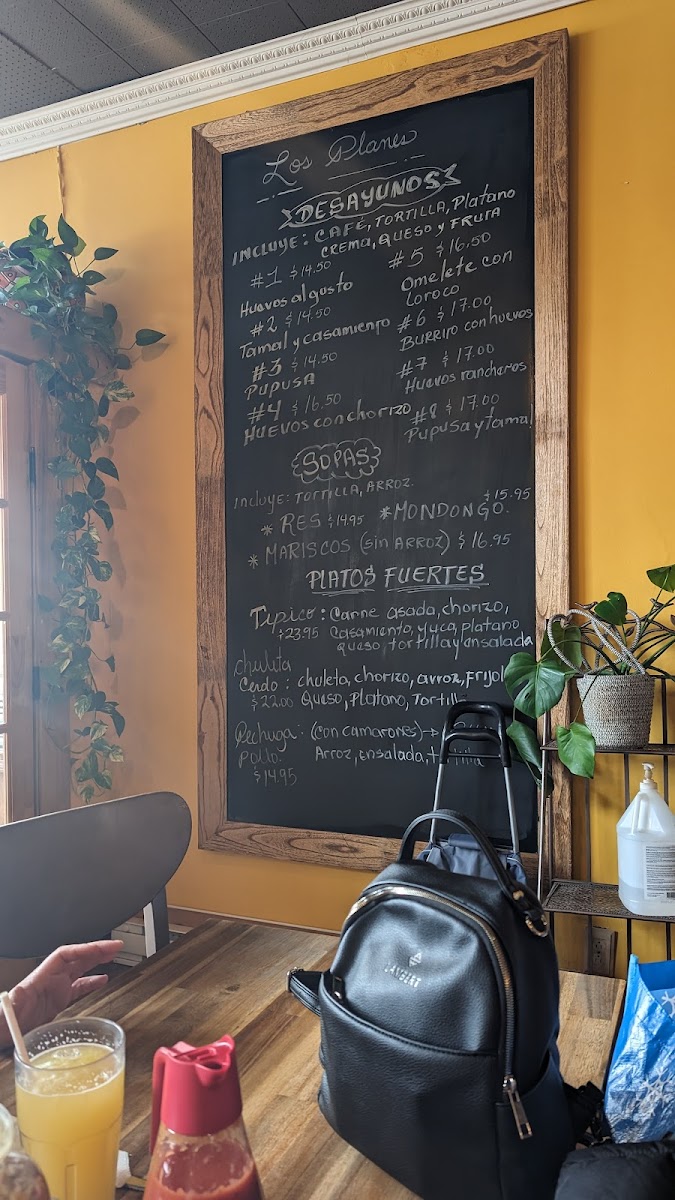 Los Planes
DESAYUNOS
INCLUYE: CAFÉ, TORTILLA, Platano
CREMA, QUESO y FRUTA
#1 $14.50
Huevos al gusto
#2 $14.50
Tamal y casamiento
#3 $14.50
PUPUSA
#4 $16.50
HUEVOS con chorizo
#5 $16.50
Omelete con
Loroco
#6 $17.00
Burrito con huevos
#7 $17.00
Huevos rancheros
#8 $17.00
Pupusa y tamal
SOPAS
incluye: TORTILLA, ARROZ.
* RES $14.95
*MONDONGO. $15.95
* MARISCOS (sin ARROZ) $16.95
PLATOS FUERTES
Tipico: Carne asada, chorizo,
$23.95 Casamiento, yuca, platano
queso, tortilla y ensalada
chuleta
Cerdo: chuleta, chorizo, arroz, Frijol
$22.00 Queso, Platano, Tortilla
Pechuga: (con camarones)→
Pollo: Arroz, ensalada,
$14.95
LAMBERT